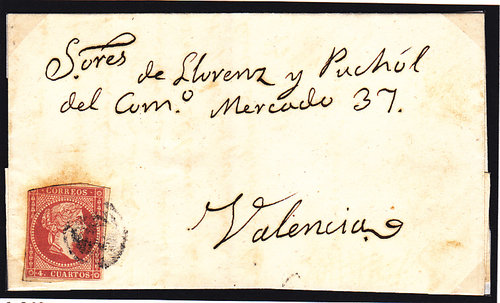 S.ores de Llorenz y Puchól
del Com.o Mercado 37.
Valencia
CORREOS
4. CUARTOS